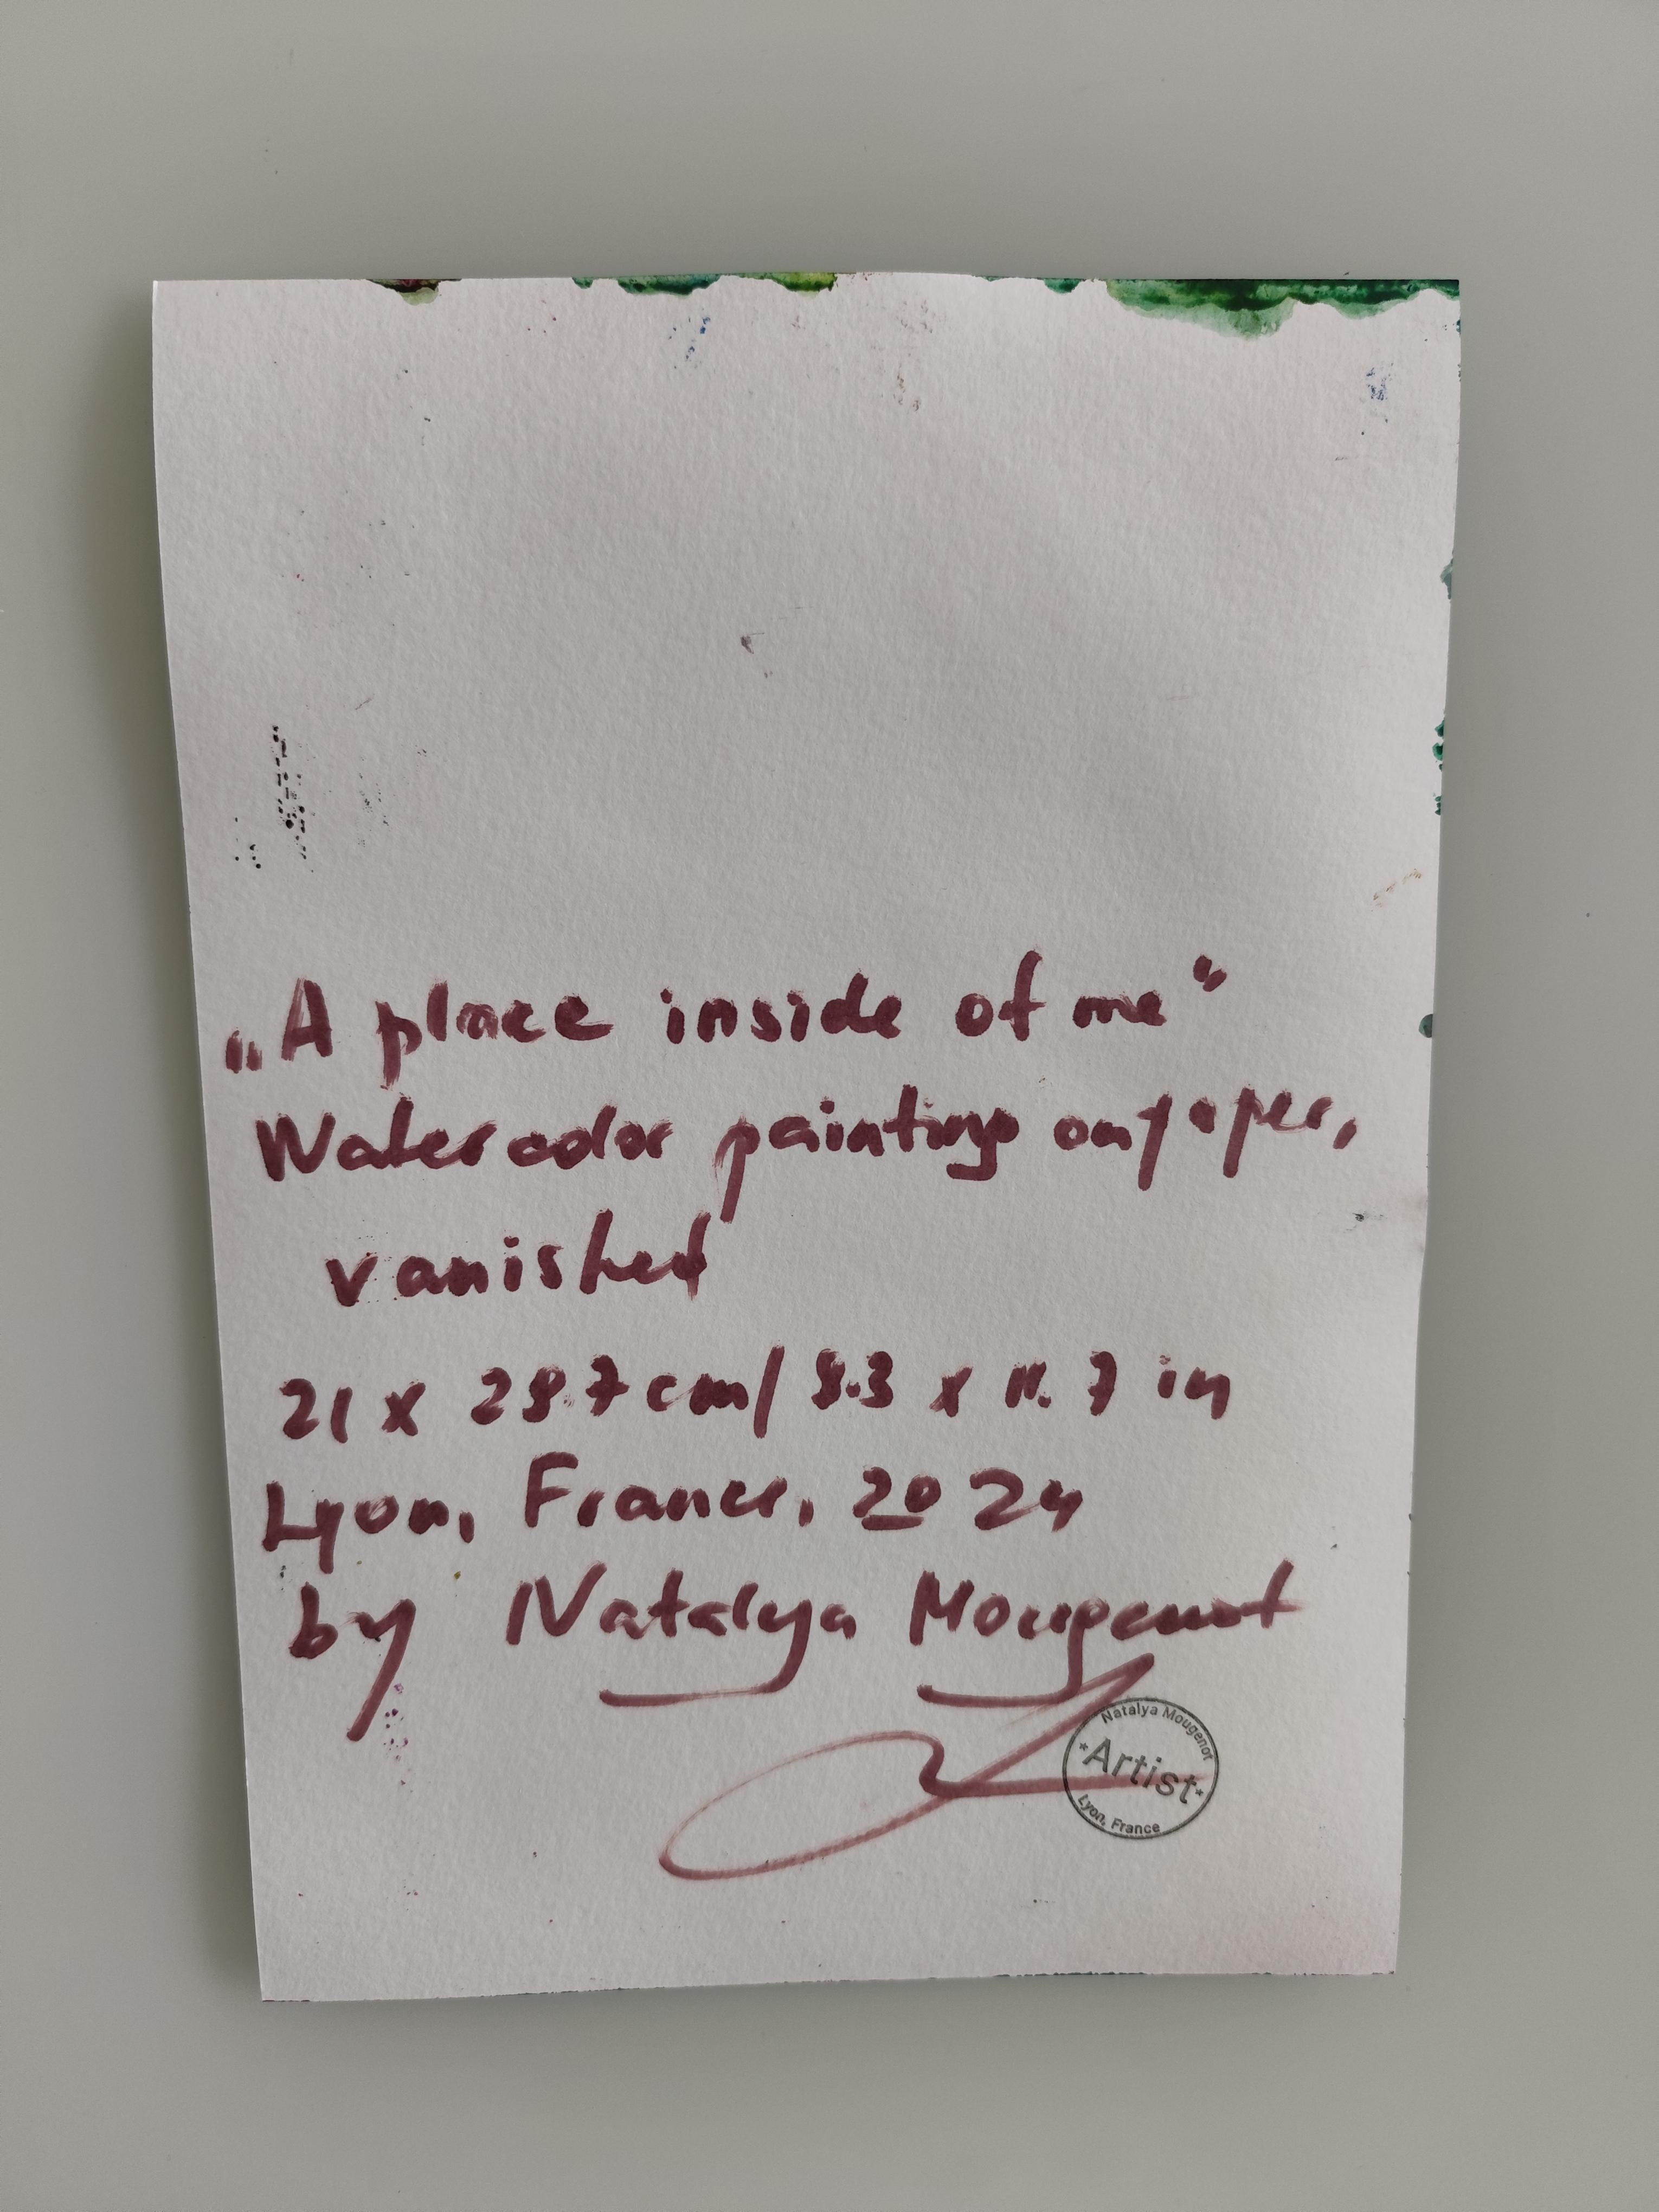 „A place inside of me"
Watercolor painting on paper,
vanished
21 x 29.7 cm / 8.3 x 11.7 in
Lyon, France, 2024
by Natalya Mougenot
Natalya Mougenot
*Artist*
Lyon, France